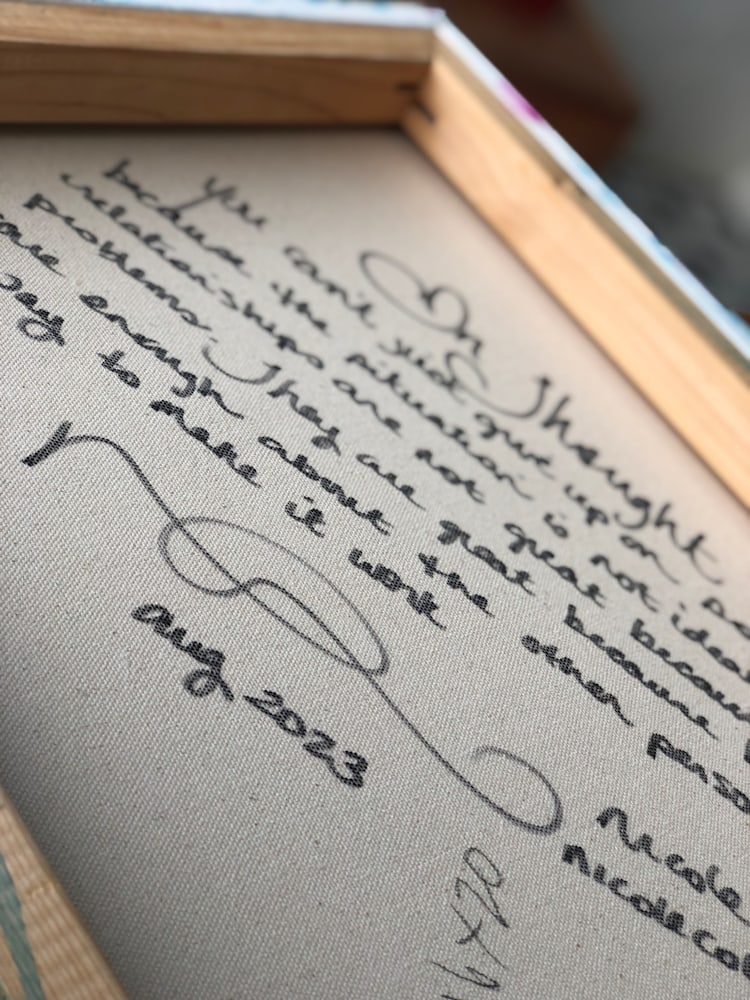 On Thought
you can't just give up on
because the situation is not ideal
relationships are not great becaus
problems. They are great because
are enough about the other perso
to make it work
aug 2023
Nicole
Nicoleco
6x20